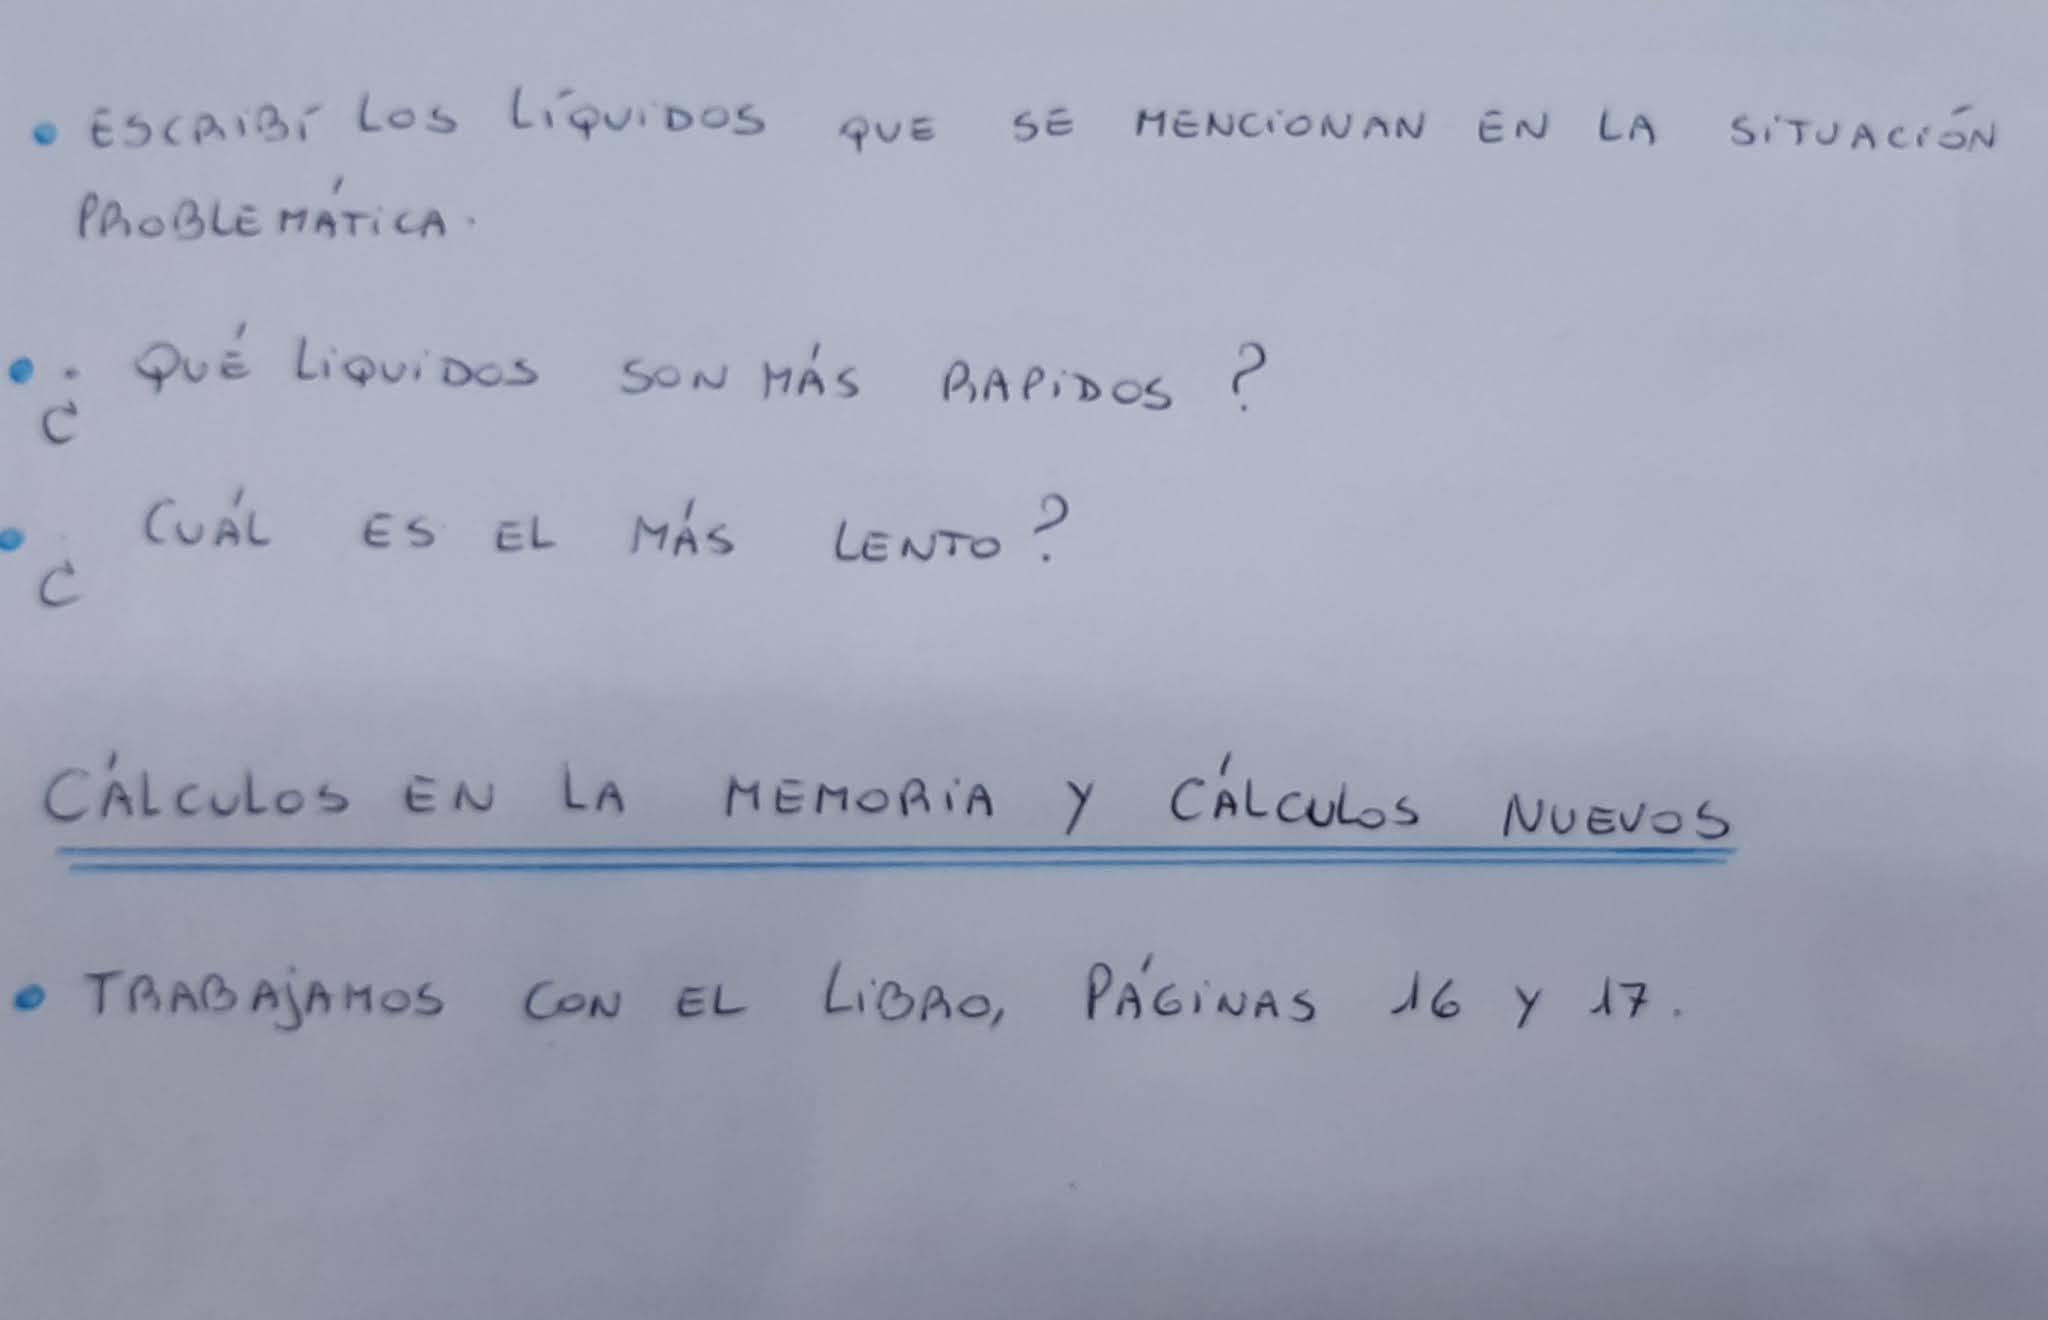 • ESCRIBÍ LOS LÍQUIDOS QUE SE MENCIONAN EN LA SITUACIÓN
PROBLEMÁTICA.
• ¿QUÉ LIQUIDOS SON MÁS RAPIDOS?
• ¿CUÁL ES EL MÁS LENTO?
CÁLCULOS EN LA MEMORIA Y CÁLCULOS NUEVOS
• TRABAJAMOS CON EL LIBRO, PÁGINAS 16 Y 17.